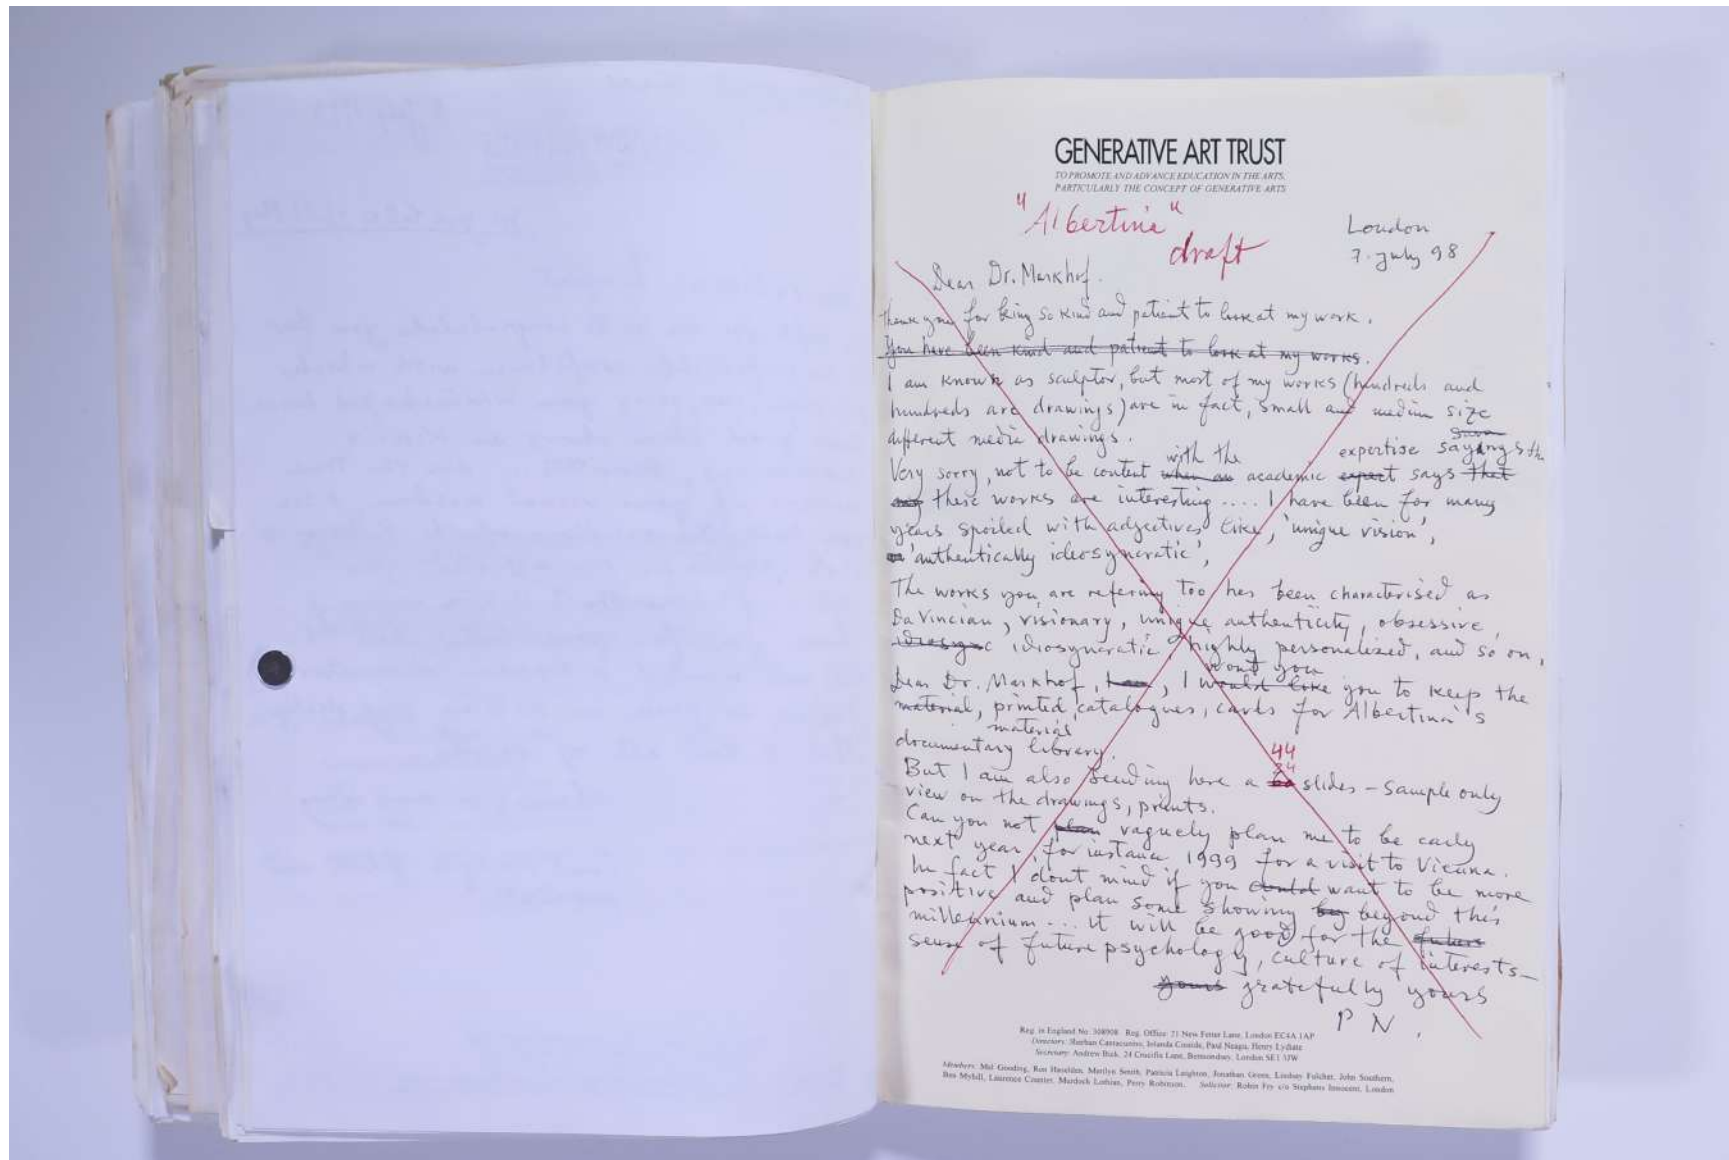 GENERATIVE ART TRUST
TO PROMOTE AND ADVANCE EDUCATION IN THE ARTS,
PARTICULARLY THE CONCEPT OF GENERATIVE ARTS
"Albertina"
draft
London
7. July 98
Dear Dr. Markhof.
Thank you for being so kind and patient to look at my work.
You have been kind and patient to look at my works.
I am known as sculptor, but most of my works (hundreds and
hundreds are drawings) are in fact, small and medium size
different media drawings.
with the expertise sayings
Very sorry, not to be content when an academic expert says that
these works are interesting .... I have been for many
years spoiled with adjectives like, 'unique vision',
'authentically ideosyncratic',
The works you are refering too hes been characterised as
Da Vincian, visionary, unique authenticity, obsessive,
idiosyncratic, highly personalized, and so on,
want you
Dear Dr. Markhof, , I would like you to keep the
material, printed, catalogues, cards for Albertina's
materials
documentary library.
44
34
But I am also sending here a slides - sample only
view on the drawings, prints.
Can you not plan vaguely plan me to be early
next year, for instance 1999 for a visit to Vienna.
In fact I dont mind if you could want to be more
positive and plan some showing by beyond this
millennium ... it will be good for the future
sense of future psychology, culture of interests -
yours gratefully yours
P N.
Reg. in England No: 308908 Reg. Office: 21 New Fetter Lane, London EC4A 1AP
Directors: Sherban Cantacuzino, Paul Neagu, Henry Lydiate
Secretary: Andrew Bick, 24 Crucifix Lane, Bermondsey, London SE1 3JW
Members: Mel Gooding, Ron Haselden, Marilyn Smith, Patricia Leighton, Jonathan Greet, Lindsey Fulcher, John Southern,
Ben Myhill, Laurence Courier, Murdock Lothian, Perry Robinson. Solicitor: Robin Fry c/o Stephens Innocent, London